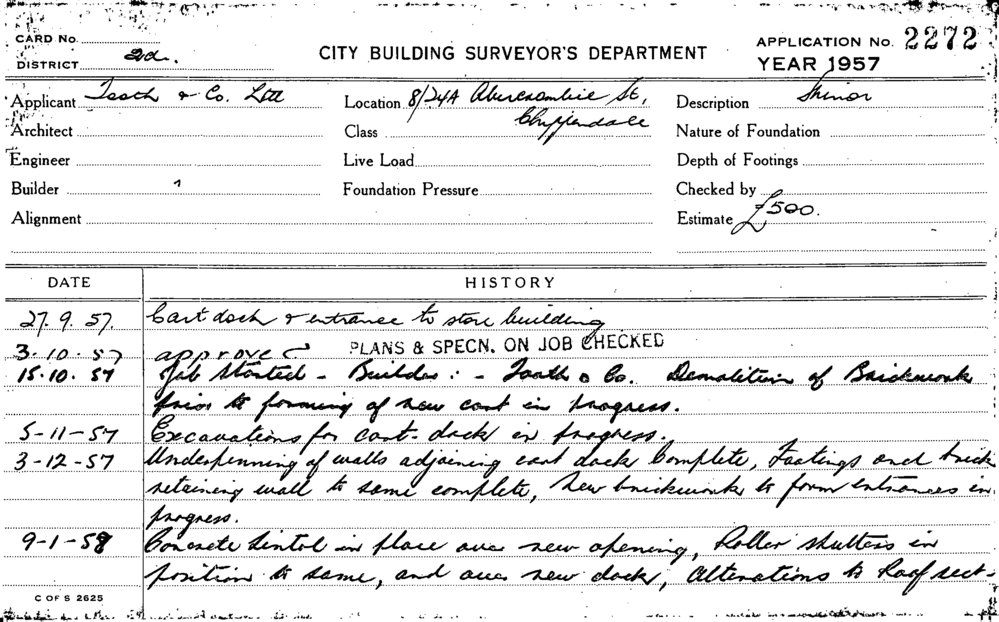 CARD No.
DISTRICT 2d.
CITY BUILDING SURVEYOR'S DEPARTMENT
APPLICATION No. 2272
YEAR 1957
Applicant Tooth & Co. Ltd
Location 8/24A Abercrombie St,
Chippendale
Description Minor
Architect
Class
Nature of Foundation
Engineer
Live Load
Depth of Footings
Builder "
Foundation Pressure
Checked by
Alignment
Estimate £500.
DATE HISTORY
27.9.57. Cart dock & entrance to store building
3.10.57 approved PLANS & SPECN. ON JOB CHECKED
15.10.57 Job Started - Builder: - Tooth & Co. Demolition of Brickwork
prior to forming of new cart in progress.
5-11-57 Excavations for cart-dock in progress.
3-12-57 Underpinning of walls adjoining cart dock Complete, Footings and brick
retaining wall to same complete, New brickwork to form entrances in
progress.
9-1-58 Concrete Lintol in place over new opening, Roller shutters in
position to same, and over new dock, Alterations to Roof sect-
C OF S 2625